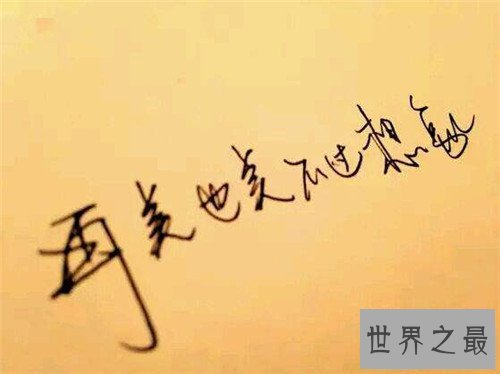 再美也美不过想象
世界之最